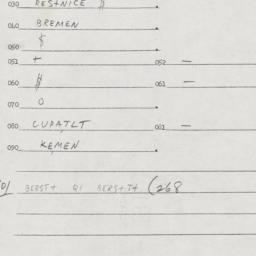 030 RESTNICE
040 BREMEN
050 $
051 + 052 —
060 061 —
070 0
080 CUPATLT 081 —
090 KEMEN
BERST+ QI BERS+T+ (268